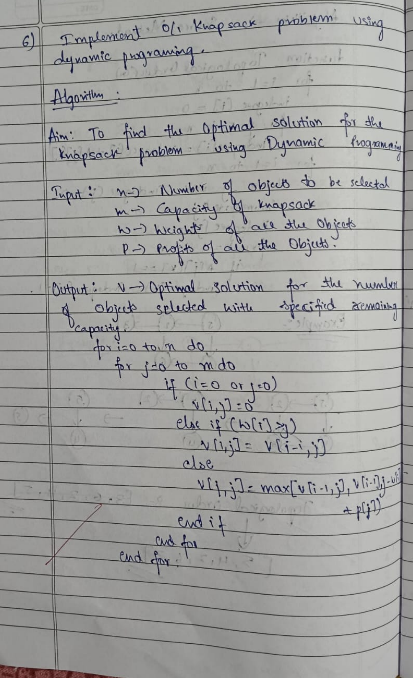 6) Implement 0/1 Knapsack problem using
dynamic programing.
Algorithm :
Aim: To find the Optimal solution for the
Knapsack problem using Dynamic Programming
Input : n → Number of objects to be selected
m → Capacity of knapsack
w → Weights of all the Objects
P → Profits of all the Objects.
Output : V → Optimal solution for the number
of objects selected with specified remaining
capacity.
for i=0 to n do
for j=0 to m do
if (i=0 or j=0)
v[i,j]=0
else if (w[i]>j)
v[i,j] = v[i-1,j]
else
v[i,j] = max[v[i-1,j], v[i-1,j-w[i]
+ p[j])
end if
end for
end for.